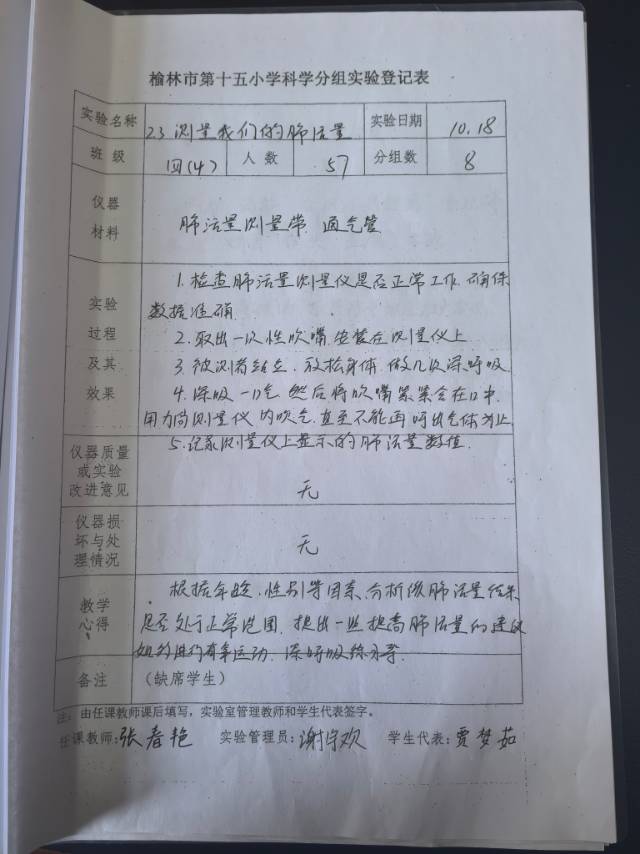 榆林市第十五小学科学分组实验登记表
实验名称 2.3 测量我们的肺活量 实验日期 10.18
班级 四(4) 人数 57 分组数 8
仪器
材料
肺活量测量带 通气管
实验
过程
及其
效果
1. 检查肺活量测量仪是否正常工作,确保
数据准确
2. 取出一次性吹嘴,安装在测量仪上
3. 被测者站立,放松身体,做几次深呼吸
4. 深吸一口气,然后将吹嘴紧紧含在口中,
用力向测量仪内吹气,直至不能再呼出气体为止
5. 记录测量仪上显示的肺活量数值.
仪器质量
或实验
改进意见
无
仪器损
坏与处
理情况
无
教学
心得
根据年龄、性别等因素,分析做肺活量结果
是否处于正常范围,提出一些提高肺活量的建议
如进行有氧运动、深呼吸练习等.
备注 (缺席学生)
注:由任课教师课后填写,实验室管理教师和学生代表签字。
任课教师:张春艳 实验管理员:谢宇欢 学生代表:贾梦茹